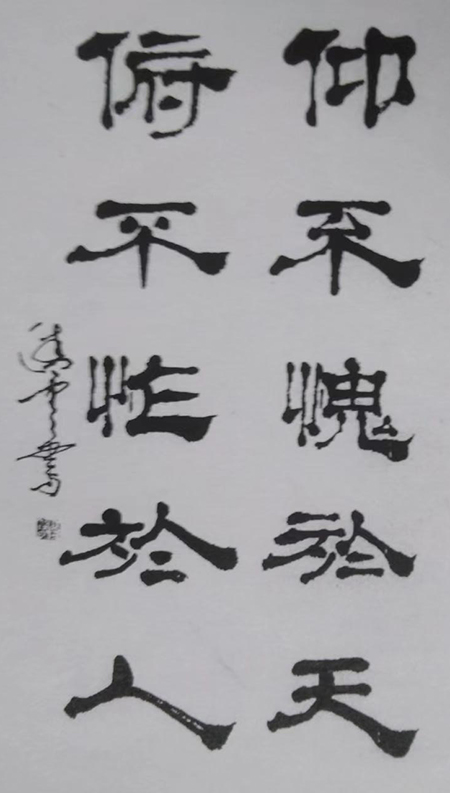 仰不愧於天
俯不怍於人